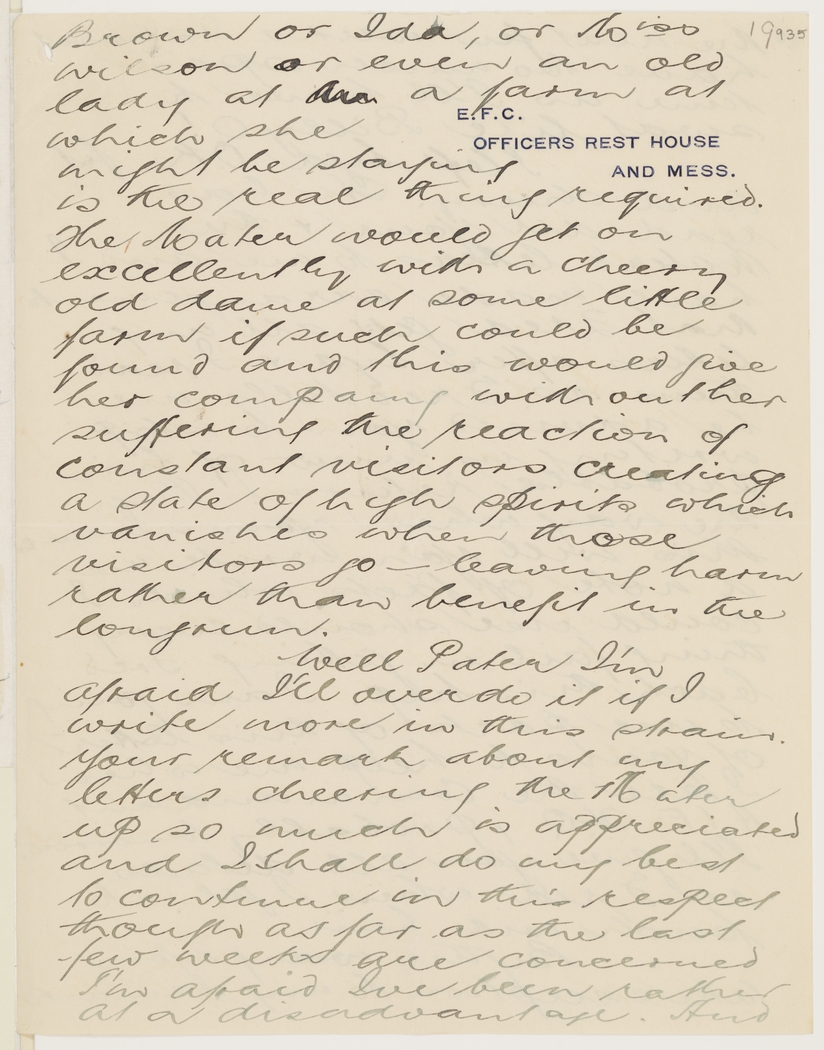 19935
Brown or Ida, or Miss
Wilson or even an old
lady at a farm at
E.F.C.
OFFICERS REST HOUSE
AND MESS.
which she
might be staying
is the real thing required.
The Mater would get on
excellently with a cheery
old dame at some little
farm if such could be
found and this would give
her company without her
suffering the reaction of
constant visitors creating
a state of high spirits which
vanishes when those
visitors go — leaving harm
rather than benefit in the
longrun.
Well Pater I'm
afraid I'll overdo it if I
write more in this strain.
Your remark about my
letters cheering the Mater
up so much is appreciated
and I shall do my best
to continue in this respect
though as far as the last
few weeks are concerned
I'm afraid I've been rather
at a disadvantage. And